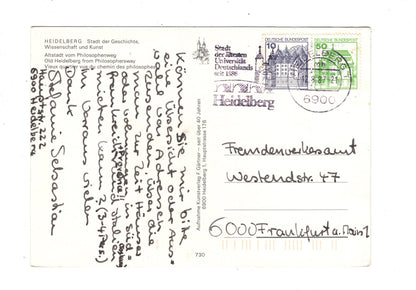 HEIDELBERG Stadt der Geschichte,
Wissenschaft und Kunst
Altstadt vom Philosophenweg
Old Heidelberg from Philosophersway
Vieux quartier vu du chemin des philosophes
Können Sie mir bitte
eine Übersicht oder Aus-
wahl von Adressen
zusenden, über die
man zur Zeit Häuser
in Süd-
frankreich
mieten kann? (3-4 Pers.)
Im Voraus vielen
Dank
Stefanie Sebastian
222
6900 Heidelberg
Aufnahme Kunstverlag F. Gärtner — seit über 40 Jahren
6900 Heidelberg 1, Hauptstrasse 116
730
Stadt
der ältesten
Universität
Deutschlands
seit 1386
Heidelberg
DEUTSCHE BUNDESPOST
10
DEUTSCHE BUNDESPOST
50
HEIDELBERG 1
6900
Fremdenverkehrsamt
Westendstr. 47
6000 Frankfurt a. Main 1